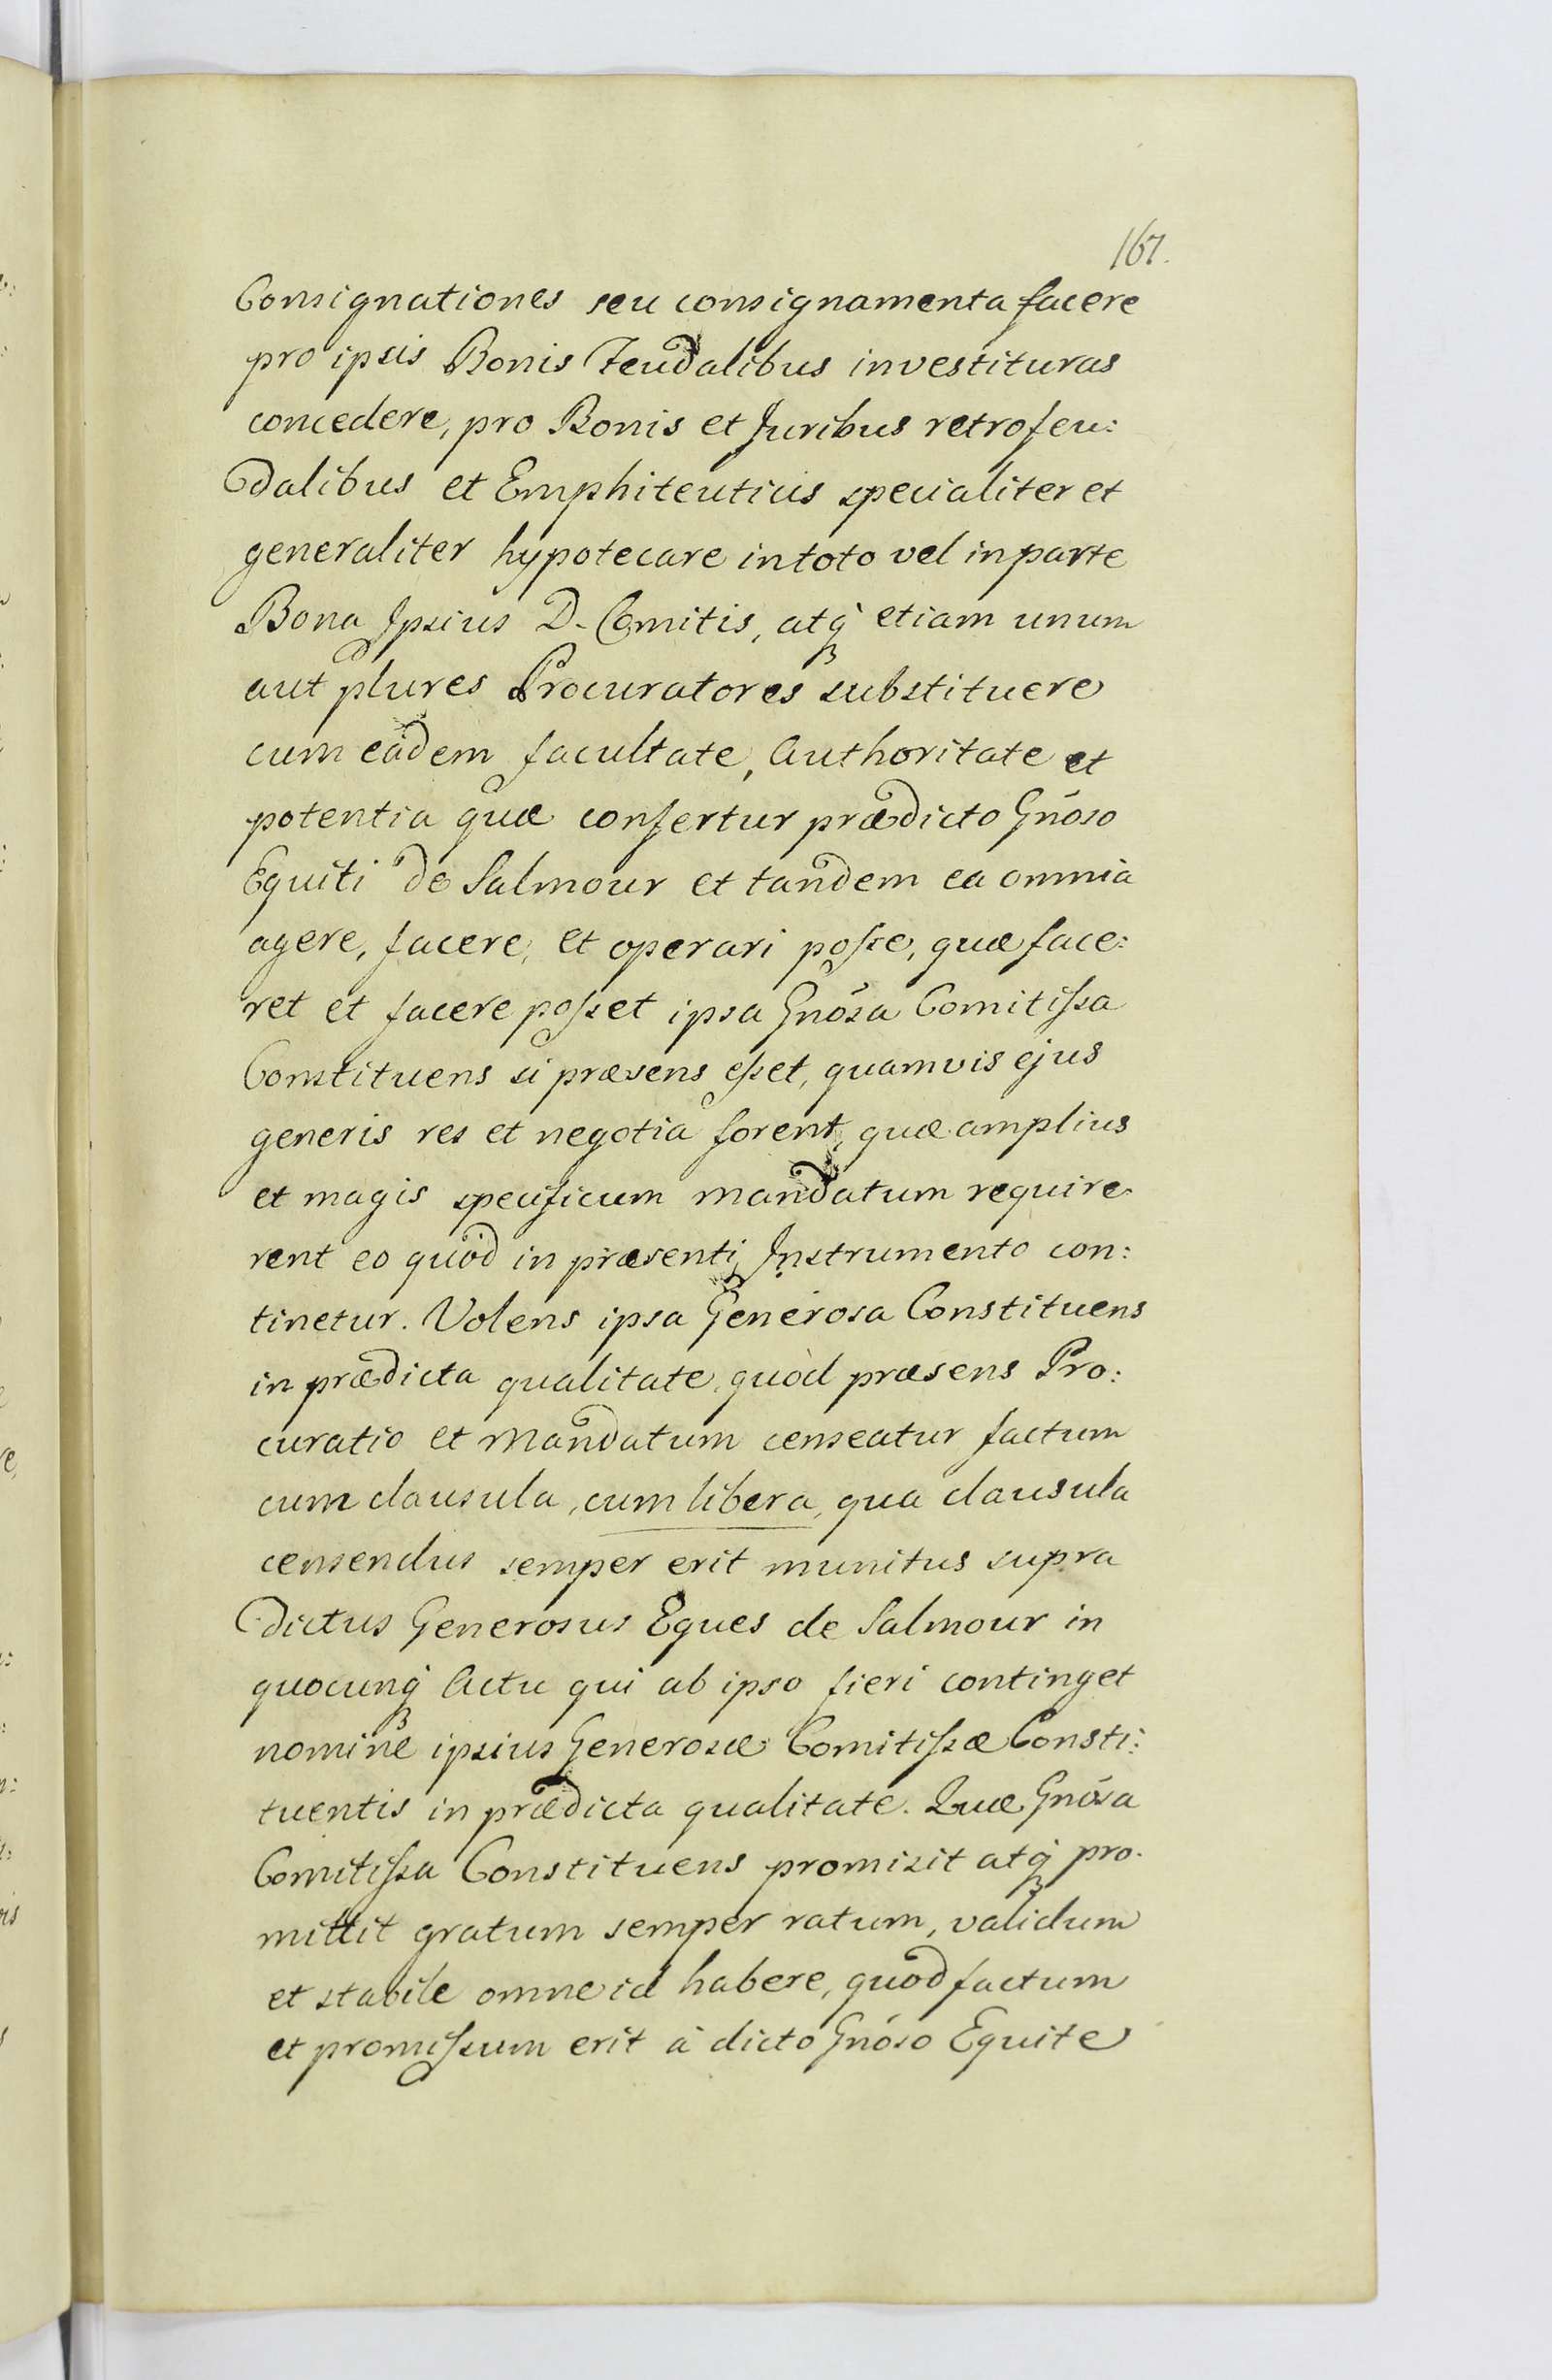 167.
Consignationes seu consignamenta facere
pro ipsis Bonis Feudalibus investituras
concedere, pro Bonis et Juribus retrofeu:
dalibus et Emphiteuticis specialiter et
generaliter hypotecare in toto vel in parte
Bona Ipsius D. Comitis, atq̀ꝫ etiam unum
aut plures Procuratores substituere
cum eâdem facultate, Authoritate et
potentia quæ confertur prædicto Gnõso
Equiti de Salmour et tandem ea omnia
agere, facere, et operari poſse, quæ face:
ret et facere poſset ipsa Gnõsa Comitiſsa
Constituens si præsens eſset, quamvis ejus
generis res et negotia forent, quæ amplius
et magis specificum mandatum require-
rent eo quod in præsenti Instrumento con:
tinetur. Volens ipsa Generosa Constituens
in prædicta qualitate, quòd præsens Pro:
curatio et Mandatum censeatur factum
cum clausula, cum libera, qua clausula
censendus semper erit munitus supra
dictus Generosus Eques de Salmour in
quocunq̀ꝫ Actu qui ab ipso fieri continget
nomine ipsius Generosæ Comitiſsæ Consti:
tuentis in prædicta qualitate. Quæ Gnõsa
Comitiſsa Constituens promisit atq̀ꝫ pro-
mittit gratum semper ratum, validum
et stabile omne id habere, quod factum
et promiſsum erit à dicto Gnõso Equite